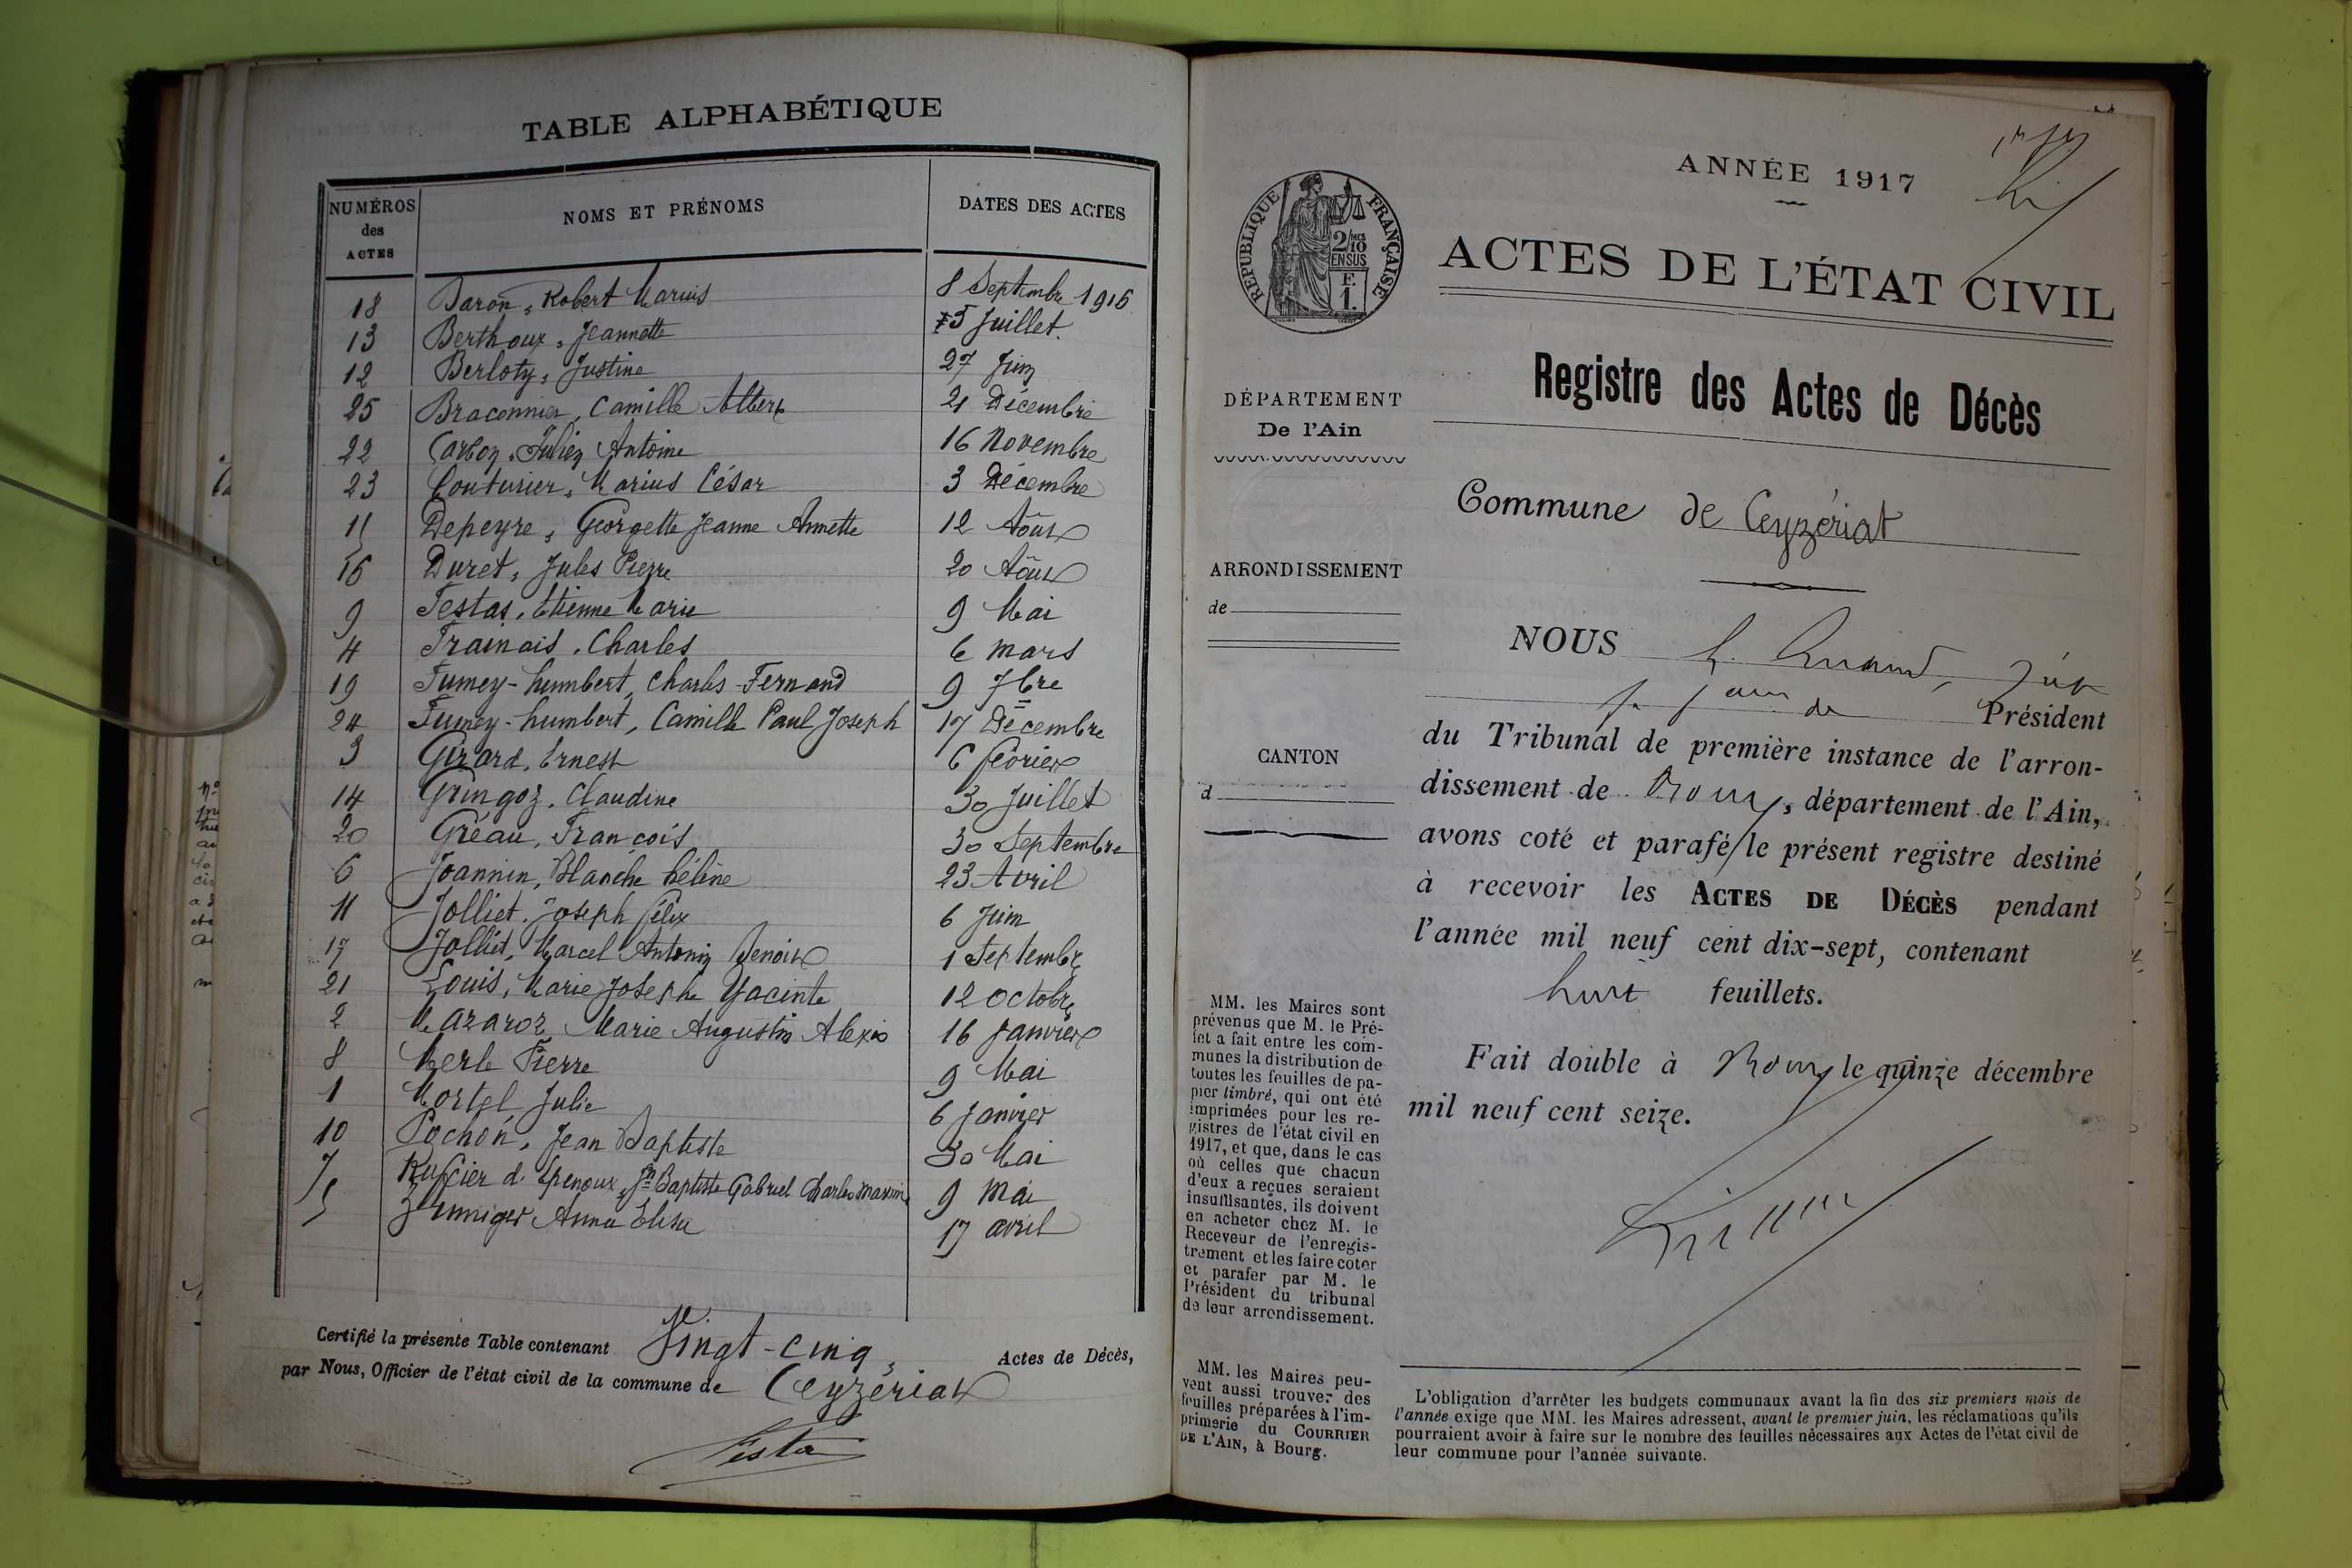 TABLE ALPHABÉTIQUE
NUMÉROS des ACTES NOMS ET PRÉNOMS DATES DES ACTES
18 Baron, Robert Marius 8 Septembre 1916
13 Berthoux, Jeannette 5 Juillet.
12 Berloty, Justine 27 Juin
25 Braconnier, Camille Albert 21 Décembre
22 Carboz, Julien Antoine 16 Novembre
23 Couturier, Marius César 3 Décembre
15 Depeyre, Georgette Jeanne Annette 12 Août
16 Duret, Jules Pierre 20 Août
9 Festas, Etienne Marie 9 Mai
4 Frainais, Charles 6 mars
19 Fumey-humbert, Charles-Fernand 9 7bre
24 Fumey-humbert, Camille Paul Joseph 17 Décembre
3 Girard, Ernest 6 février
14 Gringoz, Claudine 30 Juillet
20 Gréau, François 30 Septembre
6 Joannin, Blanche hélène 23 Avril
11 Jolliet, Joseph félix 6 Juin
17 Jolliet, Marcel Antonin Benoit 1 Septembre
21 Louis, Marie Josephe Yacinte 12 octobre
2 Mazaroz Marie Augustin Alexis 16 Janvier
8 Merle Pierre 9 Mai
1 Mortel Julie 6 Janvier
10 Pochon, Jean Baptiste 30 Mai
7 Ruffier d'Epenoux, Jn Baptiste Gabriel Charles Maxime 9 Mai
5 Zumiger Anna Elisa 17 avril
Certifié la présente Table contenant Vingt-cinq, Actes de Décès,
par Nous, Officier de l'état civil de la commune de Ceyzériat
ANNÉE 1917
RÉPUBLIQUE FRANÇAISE
2/10MES
EN SUS
F.
1.
ACTES DE L'ÉTAT CIVIL
Registre des Actes de Décès
DÉPARTEMENT
De l'Ain
Commune de Ceyzériat
ARRONDISSEMENT
de
CANTON
d
NOUS
Président
du Tribunal de première instance de l'arron-
dissement de Bourg, département de l'Ain,
avons coté et parafé le présent registre destiné
à recevoir les ACTES DE DÉCÈS pendant
l'année mil neuf cent dix-sept, contenant
huit feuillets.
Fait double à Bourg le quinze décembre
mil neuf cent seize.
MM. les Maires sont
prévenus que M. le Pré-
fet a fait entre les com-
munes la distribution de
toutes les feuilles de pa-
pier timbré, qui ont été
imprimées pour les re-
gistres de l'état civil en
1917, et que, dans le cas
où celles que chacun
d'eux a reçues seraient
insuffisantes, ils doivent
en acheter chez M. le
Receveur de l'enregis-
trement et les faire coter
et parafer par M. le
Président du tribunal
de leur arrondissement.
MM. les Maires peu-
vent aussi trouver des
feuilles préparées à l'im-
primerie du COURRIER
DE L'AIN, à Bourg.
L'obligation d'arrêter les budgets communaux avant la fin des six premiers mois de
l'année exige que MM. les Maires adressent, avant le premier juin, les réclamations qu'ils
pourraient avoir à faire sur le nombre des feuilles nécessaires aux Actes de l'état civil de
leur commune pour l'année suivante.